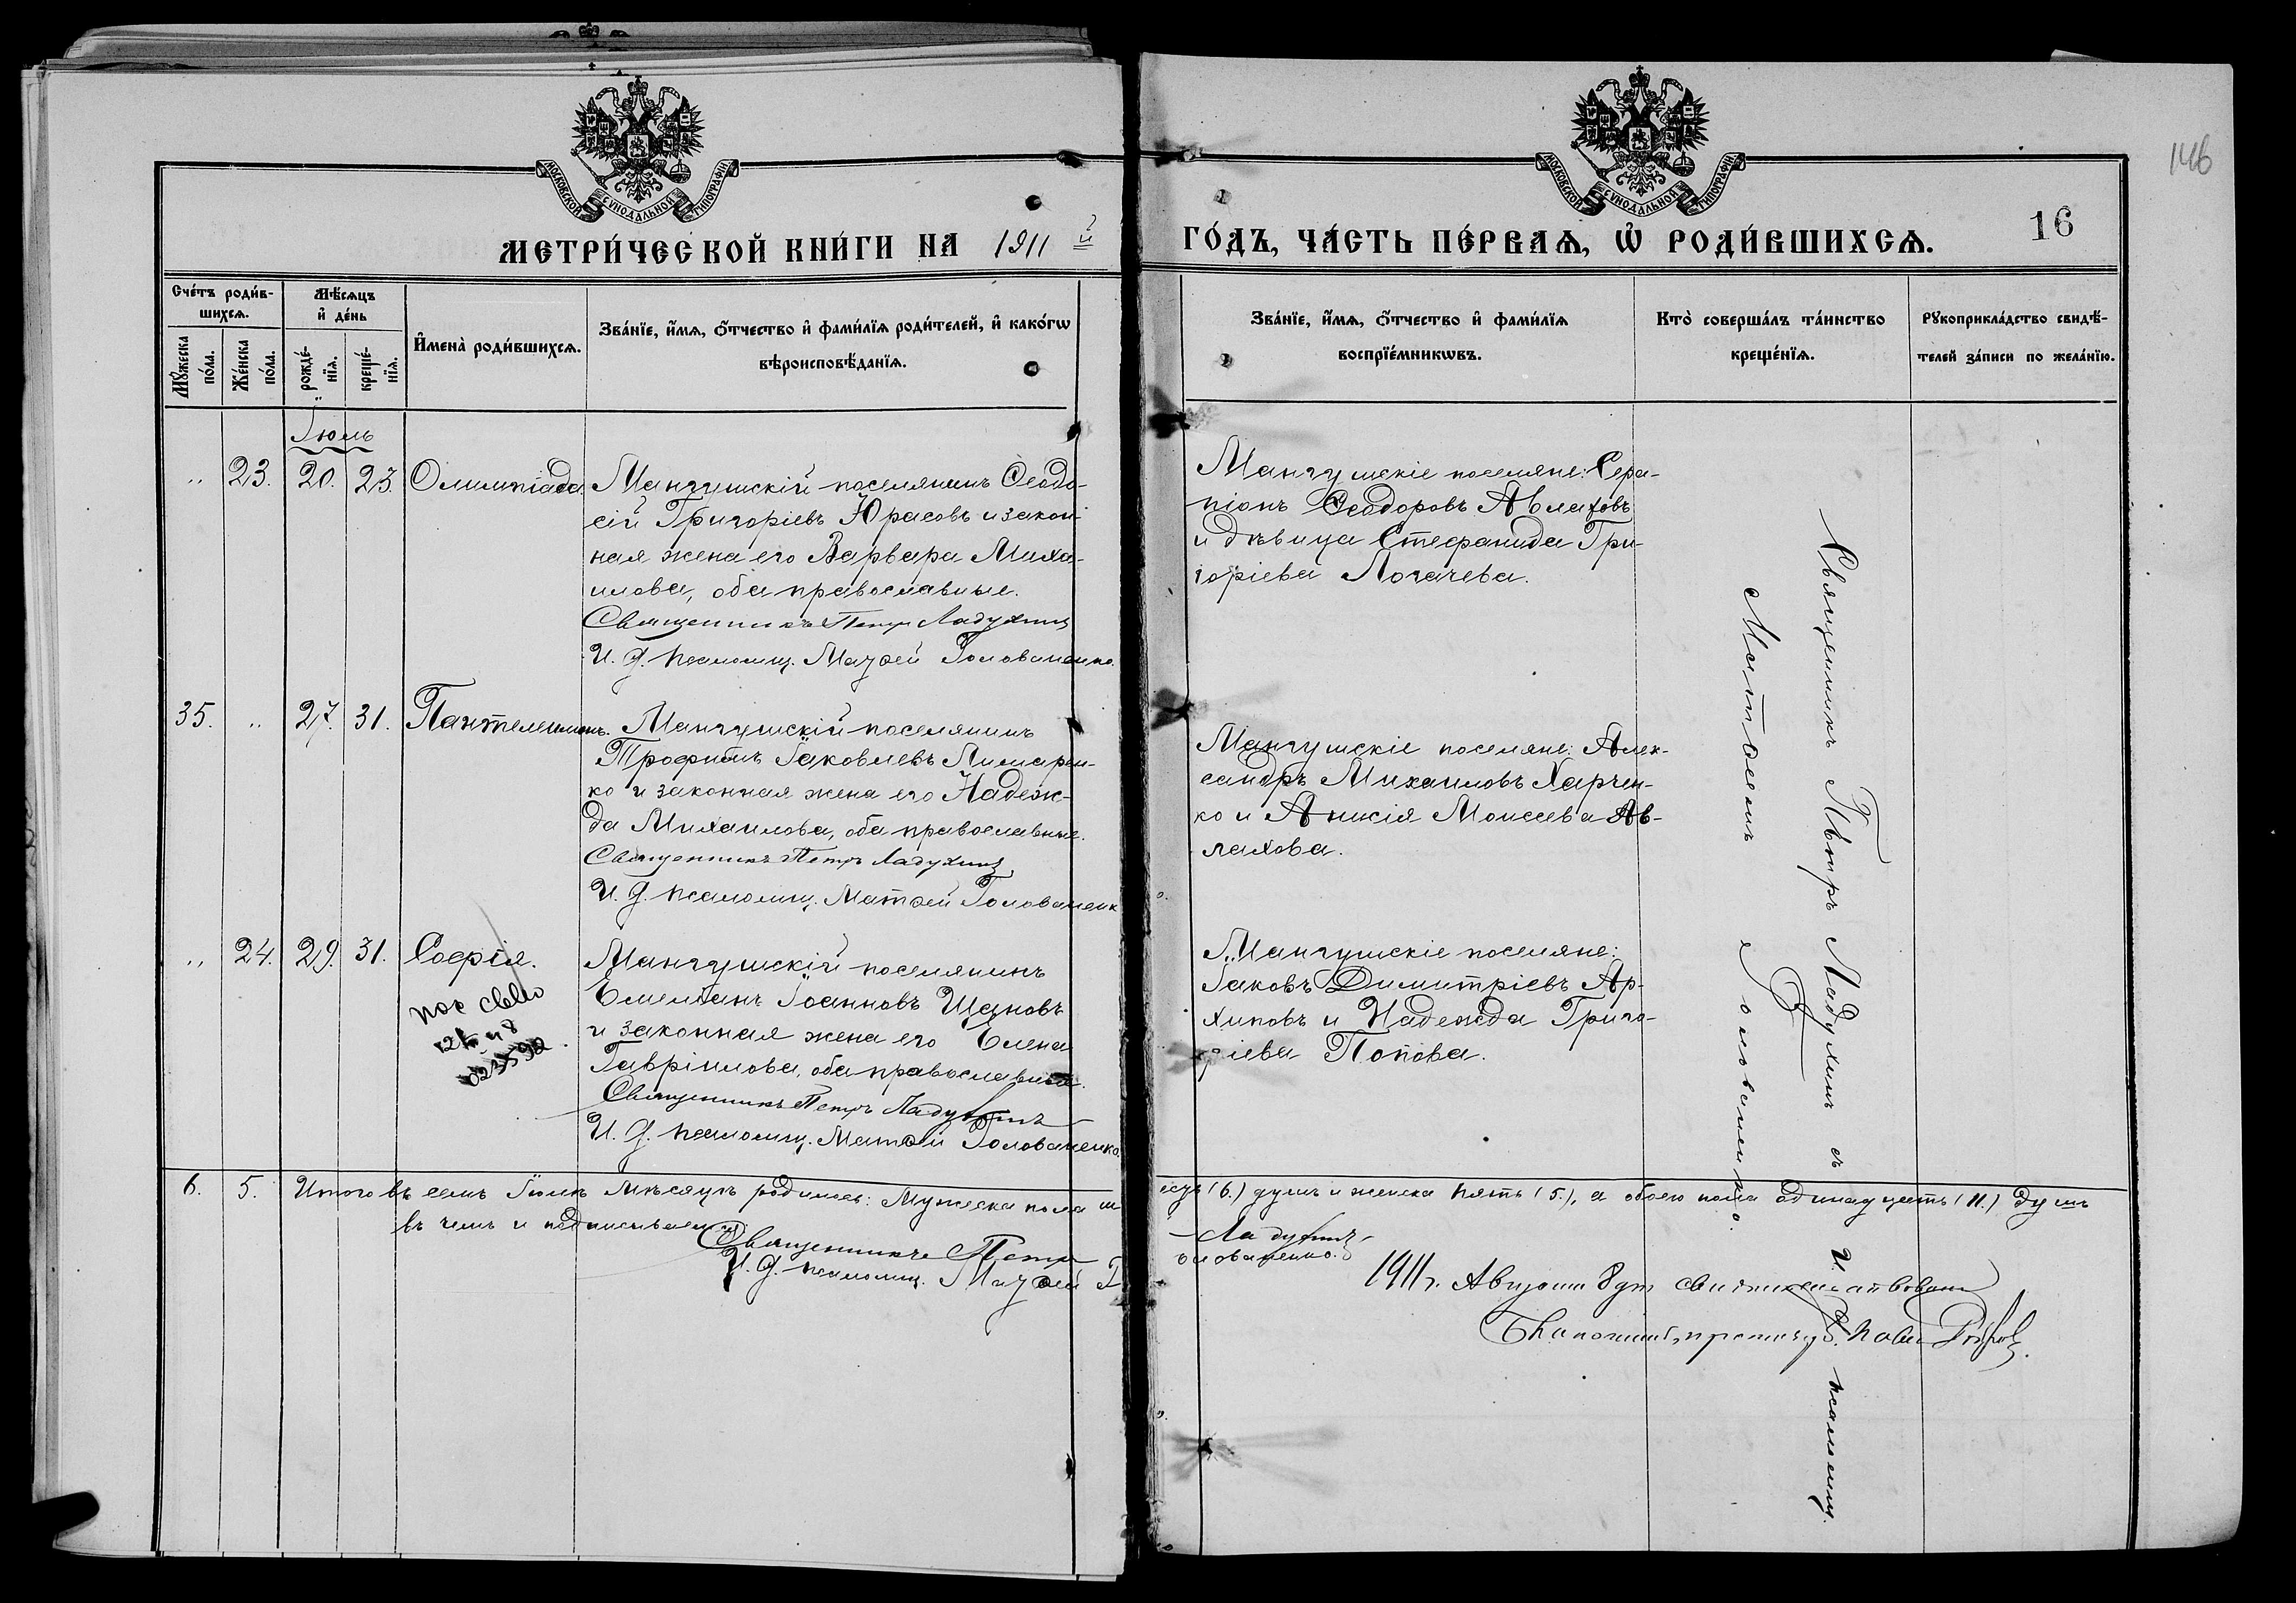 146
МОСКОВСКОЙ СУНОДАЛЬНОЙ ТИПОГРАФІИ
МОСКОВСКОЙ СУНОДАЛЬНОЙ ТИПОГРАФІИ
МЕТРИ́ЧЕСКОЙ КНИ́ГИ НА 1911 й
ГО́ДЪ, ЧА́СТЬ ПЕ́РВАЯ, Ѡ РОДИ́ВШИХСЯ.
16
Счетъ родив-
шихся.
Мꙋжеска пола.
Женска пола.
Мѣсяцъ
и день
рожде-
нїя.
креще-
нїя.
Имена родившихся.
Званїе, имя, отчество и фамилїя родителей, и какогѡ
вѣроисповѣданїя.
Званїе, имя, отчество и фамилїя
воспрїемникѡвъ.
Кто совершалъ таинство
крещенїя.
Рꙋкоприкладство свидѣ-
телей записи по желанїю.
Іюль
" 23. 20. 23. Олимпіада.
Мангушскій поселянинъ Ѳеодо-
сій Григоріевъ Юрасовъ и закон-
ная жена его Варвара Михаи-
илова, оба православные.
Священникъ Петръ Ладухинъ
И. д. псаломщ. Матѳей Голованенко.
Мангушскіе поселяне: Сера-
піонъ Ѳеодоровъ Авлаховъ
и дѣвица Стефанида Гри-
горіева Логачева.
35. " 27. 31. Пантелеимонъ.
Мангушскій поселянинъ
Трофимъ Іаковлевъ Лимарен-
ко и законная жена его Надеж-
да Михаилова, оба православные.
Священникъ Петръ Ладухинъ
И. д. псаломщ. Матѳей Голованенк
Мангушскіе поселяне: Алек-
сандръ Михаиловъ Харчен-
ко и Анисія Моисеева Ав-
лахова.
" 24. 29. 31. Софія.
Мангушскій поселянинъ
Емеліанъ Іоанновъ
и законная жена его Елена
Гавріилова, оба православные.
Священникъ Петръ Ладухинъ
И. д. псаломщ. Матѳей Голованенко.
Мангушскіе поселяне:
Іаковъ Димитріевъ Ар-
хиповъ и Надежда Григо-
ріева Попова.
Священникъ Петръ Ладухинъ съ И. д. псаломщ.
Матѳеемъ Голованенко.
6. 5. Итого въ семъ Іюлѣ мѣсяцѣ родилось: Мужеска пола ше
есть (6.) душъ и женска пять (5.), а обоего пола одинадцать (11.) душъ
въ чемъ и подписываемся
Священникъ Петръ Ладухинъ
И. д. псаломщ. Матѳей Голованенко.
1911 г. Августа 8 дня